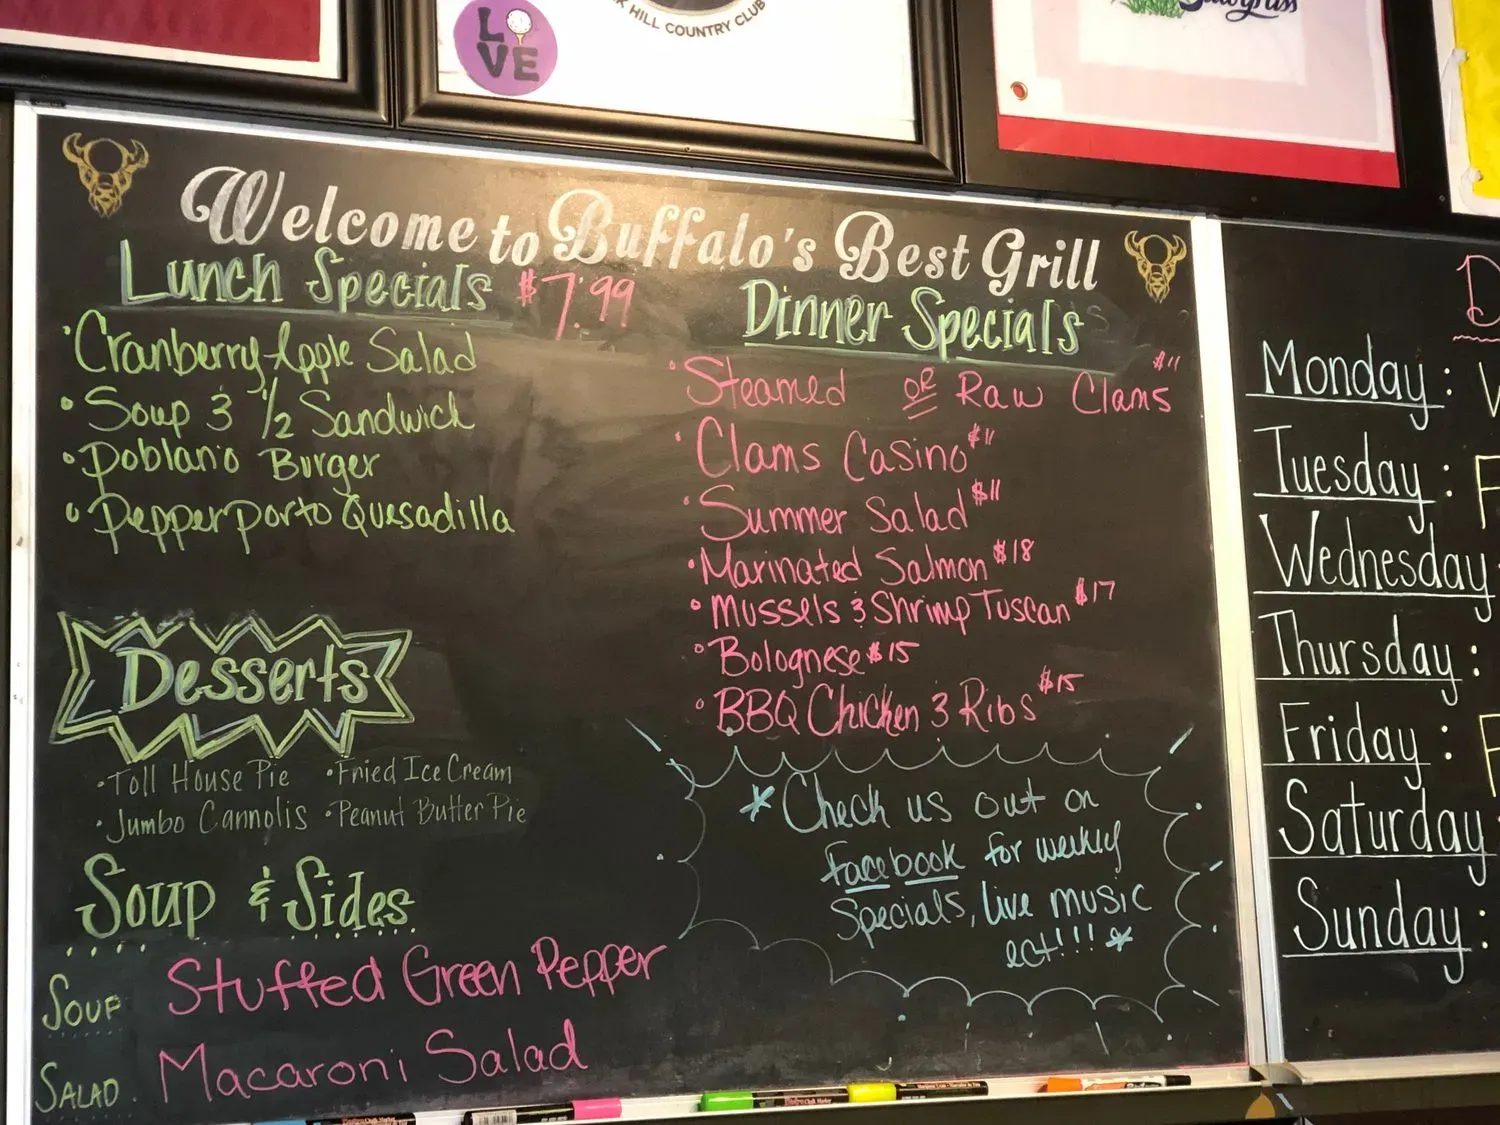 LOVE
K HILL COUNTRY CLUB
Welcome to Buffalo's Best Grill
Lunch Specials $7.99
• Cranberry Apple Salad
• Soup & 1/2 Sandwich
• Poblano Burger
• Pepperporto Quesadilla
Desserts
• Toll House Pie • Fried Ice Cream
• Jumbo Cannolis • Peanut Butter Pie
Soup & Sides
Soup Stuffed Green Pepper
Salad Macaroni Salad
Dinner Specials
• Steamed OR Raw Clams $11
• Clams Casino $11
• Summer Salad $11
• Marinated Salmon $18
• Mussels & Shrimp Tuscan $17
• Bolognese $15
• BBQ Chicken & Ribs $15
* Check us out on
facebook for weekly
Specials, live music
ect!!! *
D
Monday: V
Tuesday: F
Wednesday
Thursday:
Friday: F
Saturday
Sunday: